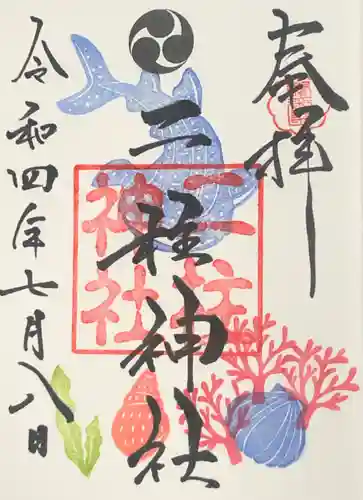 奉拝
二柱神社
二柱神社
令和四年七月八日